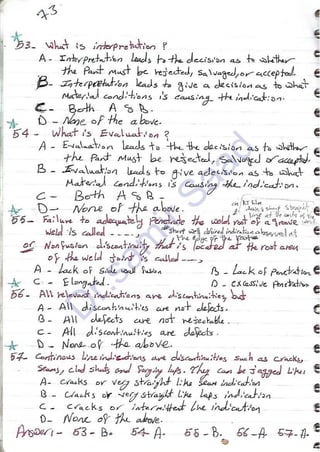 73
53- What is interpretation ?
A - Interpretation leads to the decision as to whether
the Part must be rejected, Salvaged, or accepted.
B- Interpretation leads to give a decision as to what
Material conditions is causing the indication.
C- Both A & B.
D - None of the above.
54 - what is Evaluation ?
A - Evaluation leads to the the decision as to whether
the Part Must be rejected, Salvaged or accepted.
B - Evaluation leads to give a decision as to what
Material conditions is causing the indication.
C - Both A & B -
D - None of the above.
in RT film
55- Failure to adequately Penetrate the weld root of a groove
weld is called -----,
or Nonfusion discontinuity that is located at the root area
of the weld joint is called ---,
A - lack of side wall fusion
B - Lack of Penetration
C - Elongated.
D - excessive Penetration
56- All relevant indications are discontinuities but
A - All discontinuities are not defects.
B - All defects are not rejectable.
C - All discontinuities are defects.
D - None of the above.
57- Continous line indications are discontinuities such as cracks,
Seams, clad shuts and Forging laps. They can be jagged like
A- Craks or very straight like seam indication
B - Craks or very straight like laps indication
C - Cracks or intermittent line indication
D- None of the above.
Answer:- 53- B. 54- A. 55- B. 56- A. 57- A.